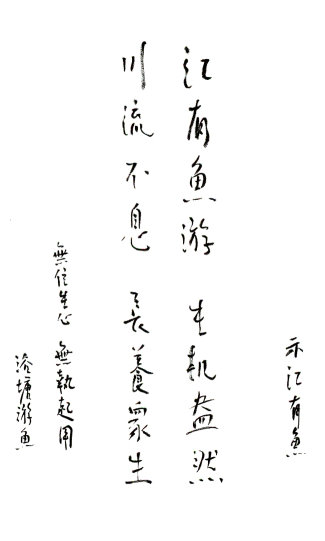 示江有魚
江有魚游 生机盎然
川流不息 長養眾生
無住生心 無執起用
浴塘游魚